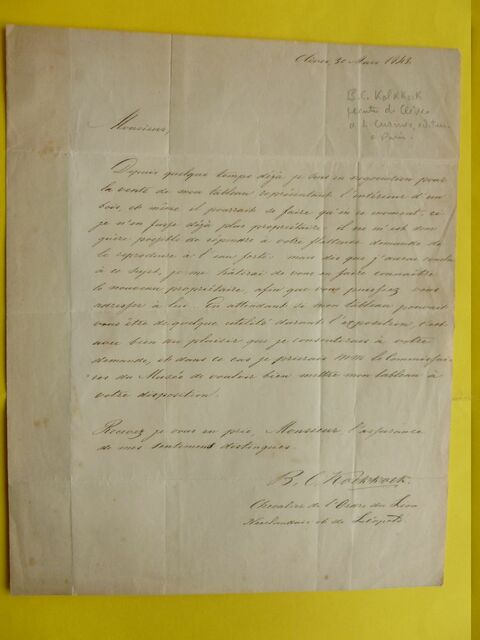 Clèves, 30 Mars 1848.
B. C. Koekkoek
peintre de Clèves
à L. Curmer, éditeur
à Paris.
Monsieur,
Depuis quelque temps déjà je suis en négociation pour
la vente de mon tableau représentant l'intérieur d'un
bois, et même il pourrait se faire qu'en ce moment, ce
je n'en fusse déjà plus propriétaire. Il ne m'est donc
guère possible de répondre à votre flatteuse demande de
le reproduire à l'eau forte: mais dès que j'aurai conclu
à ce sujet, je me hâterai de vous en faire connaître
le nouveau propriétaire, afin que vous puissiez vous
adresser à lui. En attendant si mon tableau pouvait
vous être de quelque utilité durant l'exposition, c'est
avec bien du plaisir que je consentirais à votre
demande, et dans ce cas je prierais MM. les Commissai-
res du Musée de vouloir bien mettre mon tableau à
votre disposition.
Recevez je vous en prie, Monsieur, l'assurance
de mes sentiments distingués.
B. C. Koekkoek.
Chevalier de l'Ordre du Lion
Neerlandais et de Léopold